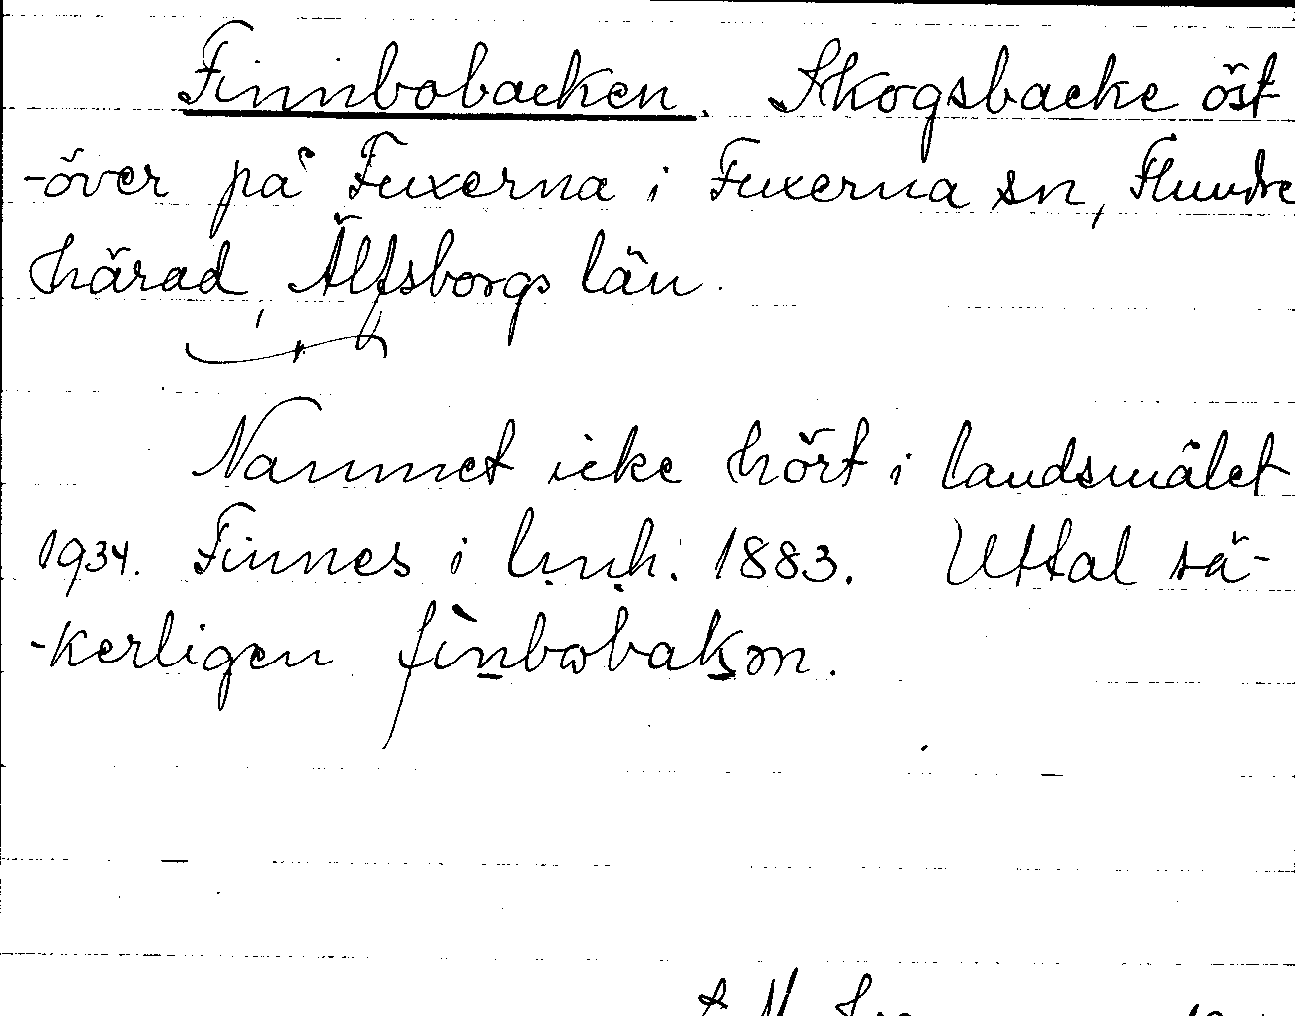 Finnbobacken. Skogsbacke öst-
-över på Fuxerna i Fuxerna sn, Flundre
härad, Älfsborgs län.
Namnet icke hört i landsmålet
1934. Finnes i l.n.h. 1883. Uttal sä-
-kerligen fìnbωbakən.